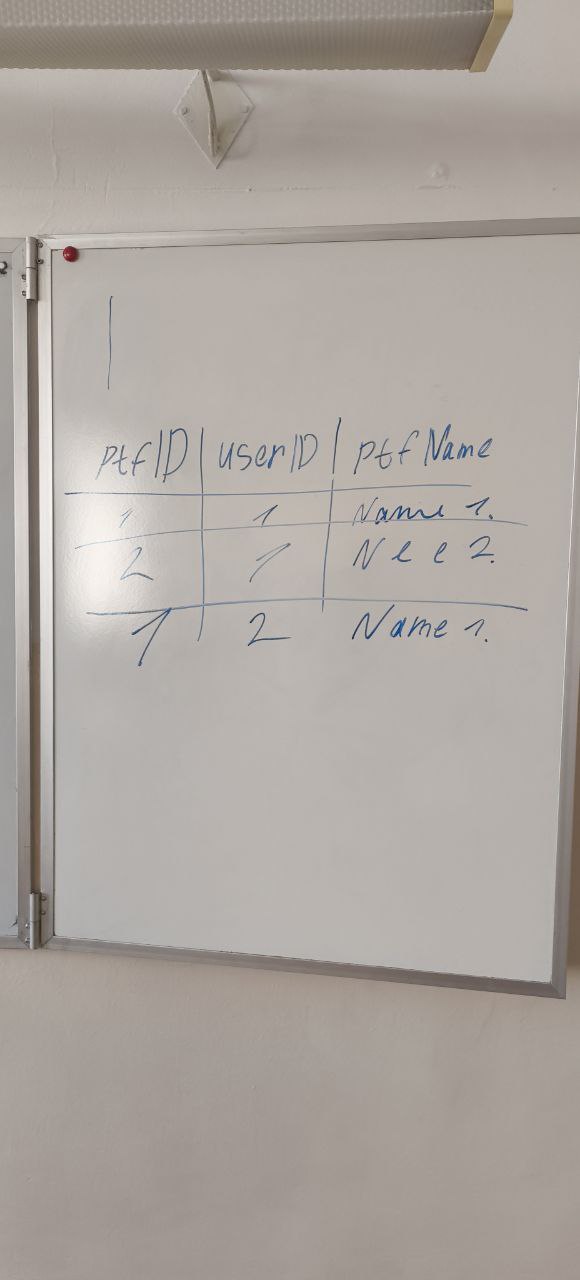 ptfID | userID | ptfName
1 1 Name 1.
2 1 N e e 2.
1 2 Name 1.